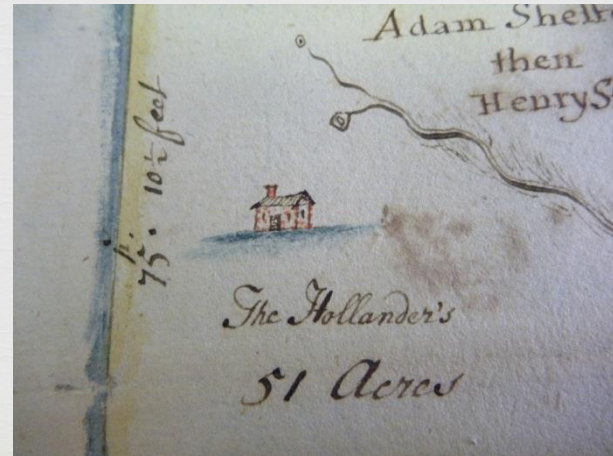 Adam
then
Henry S
75 p. 10½ feet
The Hollander's
51 Acres